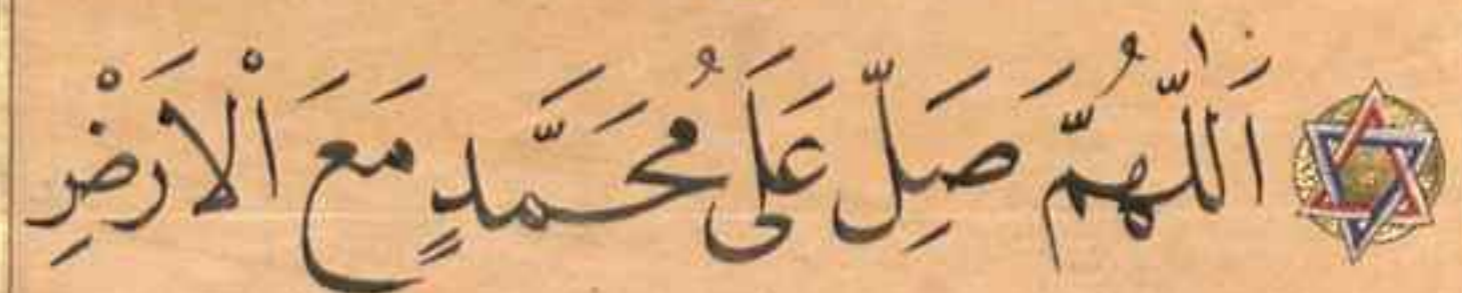 اَللّٰهُمَّ صَلِّ عَلَى مُحَمَّدٍ مَعَ الْاَرَضْرِ